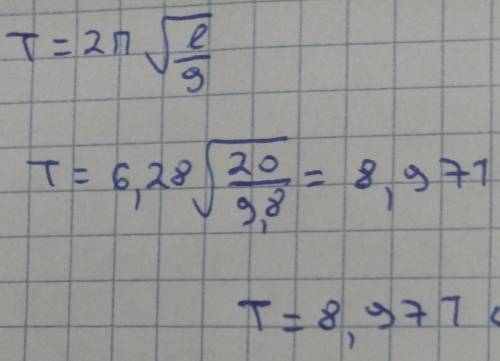 T = 2π √(l/g)
T = 6,28 √(20/9,8) = 8,971
T = 8,971 c